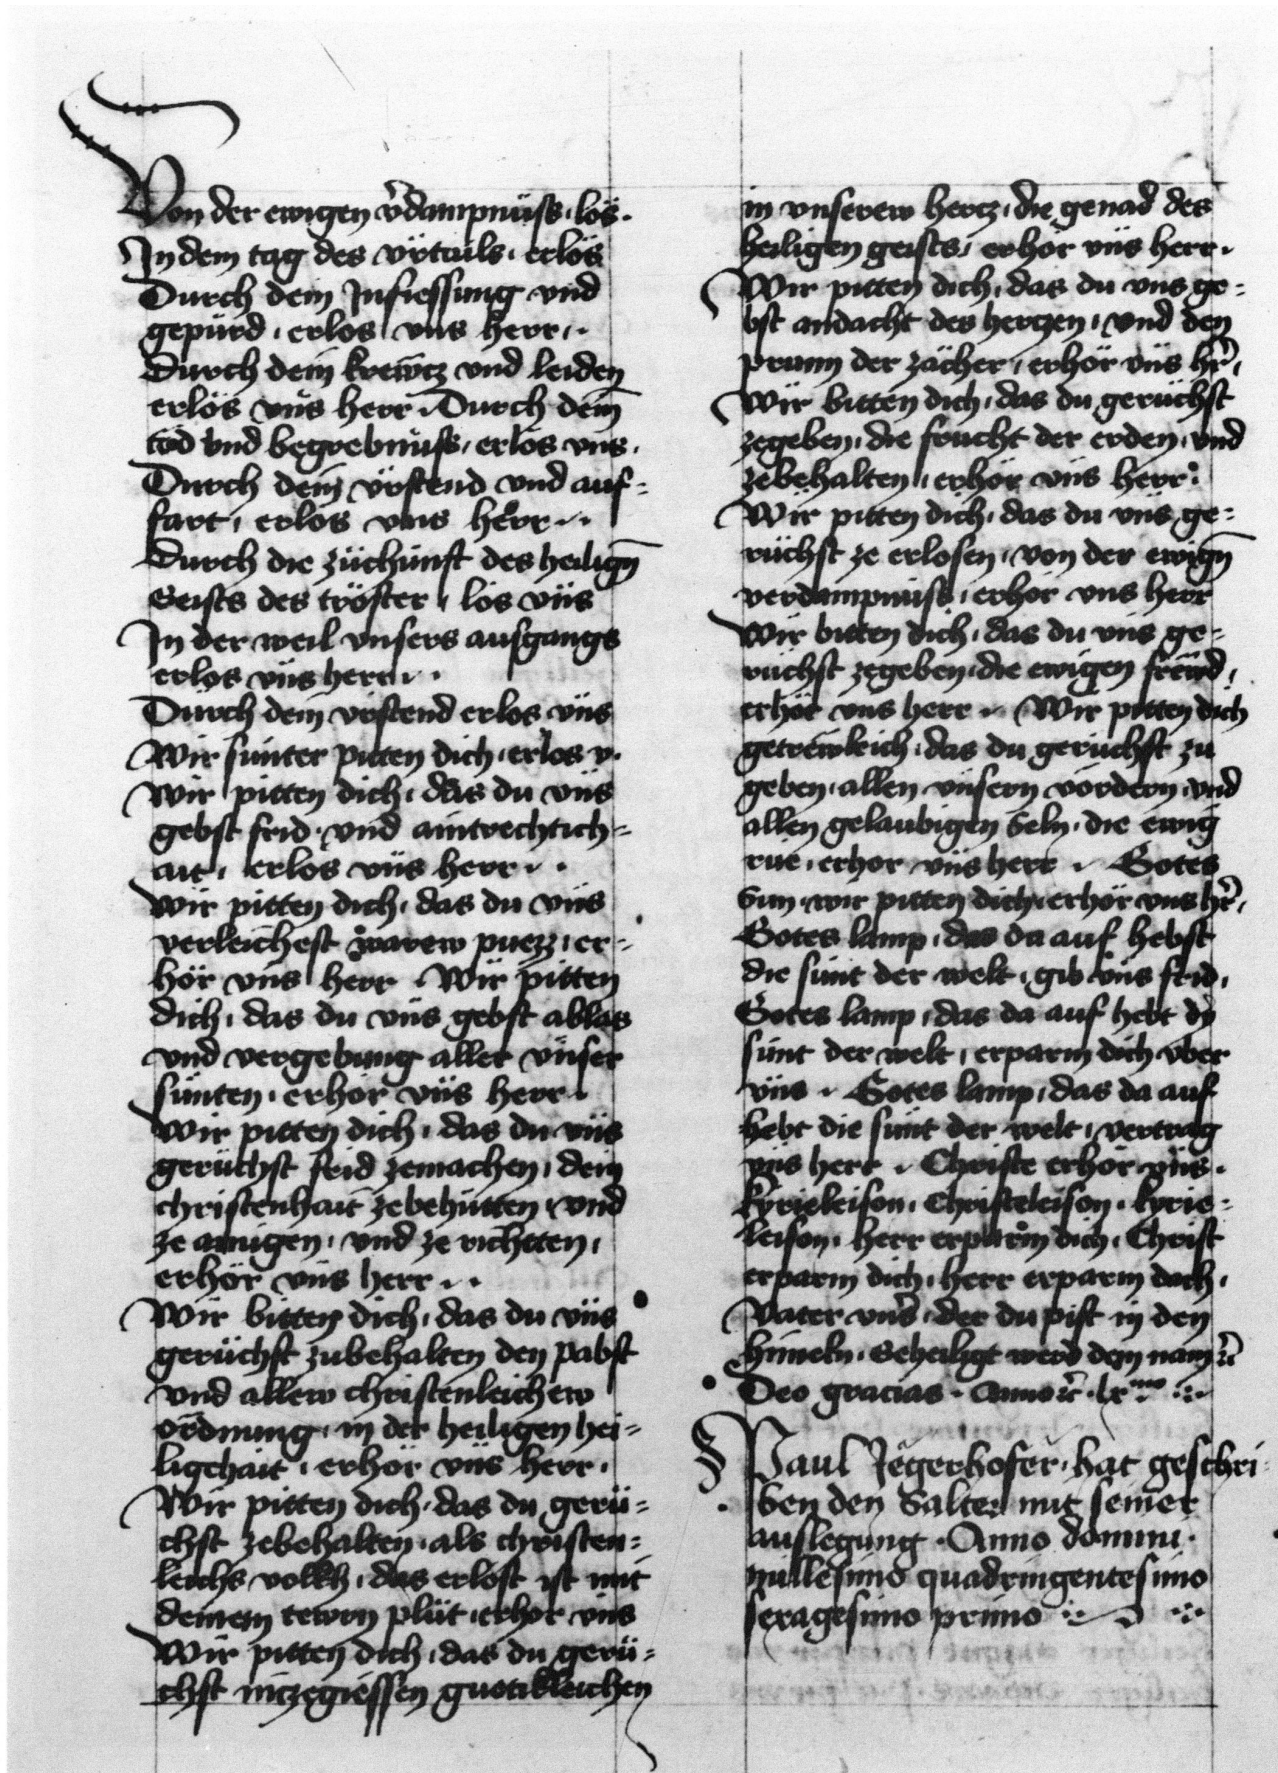 Von der ewigen v̄dampnüss · lös ·
In dem tag des vrtails · erlös
Durch dein Jnfiessung vnd
gepürd · erlos vns herr ·
Durch dein krewcz vnd leiden
erlös vns herr · Durch dein
tod vnd begrebnüss · erlös vns ·
Durch dein vrstend vnd auf=
fart · erlös vns herr ·
Durch die züchunft des heilign̄
Geists des tröster · lös vns
In der weil vnsers ausgangs
erlos vns herr ·
Durch dein vrstend erlos vns
Wir sünter pitten dich · erlos v ·
Wir pitten dich · das du vns
gebst frid · vnd aintrechtich=
ait · erlos vns herr ·
Wir pitten dich · das du vns
verleichest warew puezz · er=
hör vns herr · Wir pitten
dich · das du vns gebst ablas
vnd vergebung aller vnser
sünten · erhör vns herr ·
Wir pitten dich · das du vns
gerüchst frid zemachen · dein
christenhait zebehütten · vnd
ze ainigen · vnd ze richtten ·
erhör vns herr ·
Wir bitten dich · das du vns
gerüchst zubehalten den pabst
vnd allew christenleichew
ordnung · in der heiligen hei=
ligchait · erhör vns herr ·
Wir pitten dich · das du gerü=
chst zebehalten · als christen=
leichs volkh · das erlost ist mit
deinem tewrn plüt · erhör vns
Wir pitten dich · das du gerü=
chst inczegiessen guotikleichen
in vnserew hercz · die genad des
heiligen geists · erhör vns herr ·
Wir pitten dich · das du vns ge=
bst andacht des herczen · vnd den
prunn der zächer · erhör vns hr̄ ·
Wir bitten dich · das du gerüchst
zegeben · die frucht der erden · vnd
zebehalten · erhör vns herr ·
Wir pitten dich · das du vns ge=
rüchst ze erlosen · von der ewign̄
verdampnüss · erhör vns herr
Wir bitten dich · das du vns ge=
rüchst zegeben · die ewigen frewd ·
erhör vns herr · Wir pitten dich
getrewleich · das du gerüchst zu
geben · allen vnsern vordern · vnd
allen gelaubigen Seln · die ewig
rue · erhor vns herr · Gotes
Sun · wir pitten dich · erhör vns hr̄ ·
Gotes lamp · das da auf hebst
die sünt der welt · gib vns frid ·
Gotes lamp · das da auf hebt dÿ
sünt der welt · erparm dich vber
vns · Gotes lamp · das da auf
hebt die sünt der welt · vertrag
vns herr · Christe erhör vns ·
kyrieleison · Christeleison · kyrie=
leison · herr erparm dich · Christ
erparm dich · herr erparm dich ·
Vater vns̄ · der du pist in den
himeln · Geheiligt werd dein nam ꝛc̄
Deo gracias · Anno ꝛc̄ · lx mo
Paul Jegerhofer · hat geschri=
ben den Salter mit seiner
auslegung · Anno domini ·
millesimo quadringentesimo
sexagesimo primo